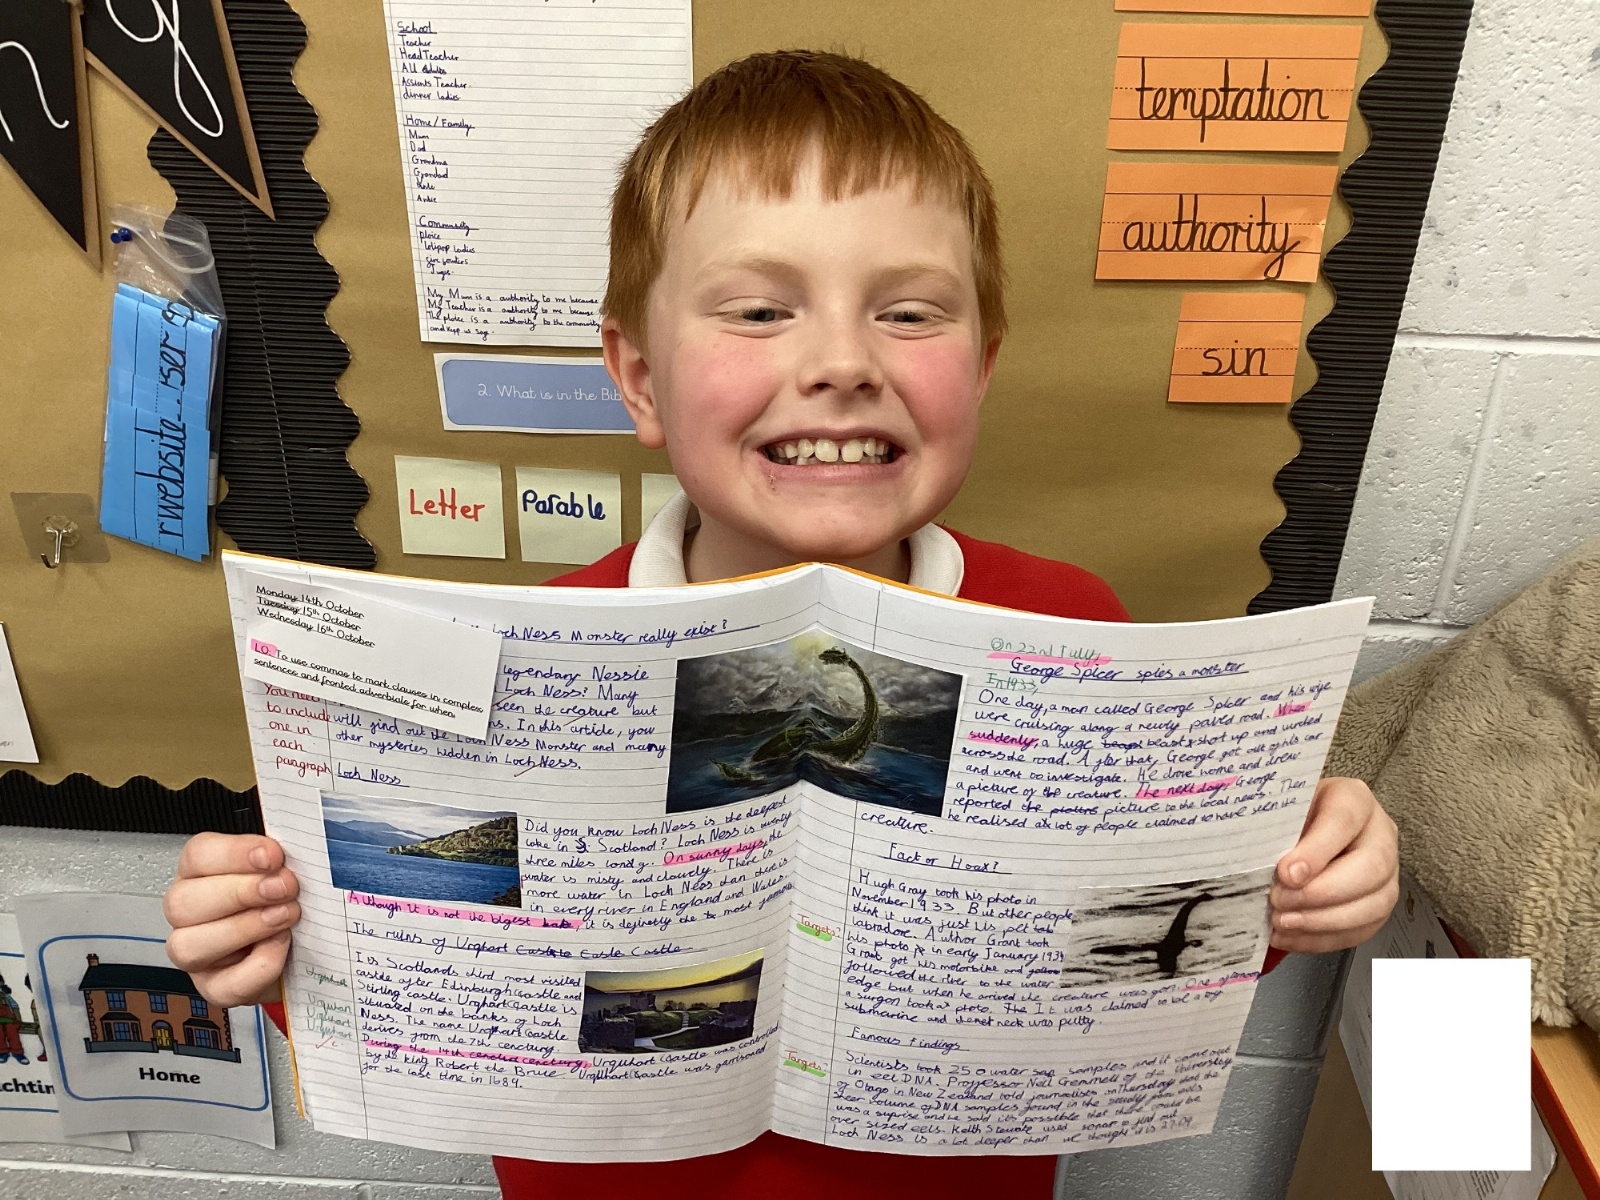 n
g
website
School
Teacher
Head Teacher
All adults
Assiants Teacher
dinner ladies
Home / Family
Mum
Dad
Grandma
Grandad
Community
ploice
lolipop ladies
My Mum is a authority to me because
My Teacher is a authority to me because
The ploice is a authority to the community
and keep us
2. What is in the Bib
Letter
Parable
temptation
authority
sin
Home
Monday 14th October
Tuesday 15th October
Wednesday 16th October
LO: To use commas to mark clauses in complex
sentences and fronted adverbials for when.
You need
to include
one in
each
paragraph
Loch Ness Monster really exist?
legendary Nessie
Loch Ness? Many
seen the creature but
ns. In this article, you
will find out the Loch Ness Monster and many
other mysteries hidden in Loch Ness.
Loch Ness
Did you know Loch Ness is the deepest
lake in Scotland? Loch Ness is twenty
three miles long. On sunny days, the
water is misty and cloudy. There is
more water in Loch Ness than there is
in every river in England and Wales.
Although it is not the biggest lake, it is definetly the most famous
The ruins of Urqhart Eastle Castle
I is Scotlands third most visited
castle after Edinburgh Castle and
Stirling castle. Urqhart Castle is
situated on the banks of Loch
Ness. The name Urqhart Castle
derives from the 7th cenctury.
During the 14th cenctury, Urquhart Castle was controlled
by the king Robert the Bruce. Urquhart Castle was garrisoned
for the last time in 1689.
Urquhart
Urquhart
Urquhart
On 22nd July,
George Spicer spies a monster
In 1933,
One day, a man called George Spicer and his wife
were cruising along a newly paved road. When
suddenly, a huge beast shot up and lurched
across the road. After that, George got out of his car
and went to investigate. He drove home and drew
a picture of the creature. The next day, George
reported the picture to the local news. Then
he realised a lot of people claimed to have seen the
creature.
Fact or Hoax?
Hugh Gray took his photo in
November 1933. But other people
think it was just his pet lab
labradore. Author Grant took
his photo in early January 1934
Grant got his motorbike and
followed the river to the water
edge but when he arrived the creature was gon. One afternoon,
a surgon took a photo. The It was claimed to be a toy
submarine and the net neck was putty.
Targets?
Famous Findings
Targets?
Scientists took 250 water samples and it came out
in eel DNA. Proffessor Neil Gemmell of the University
of Otago in New Zealand told journalists on Thursday that the
sheer volume of DNA samples found in the
was a suprise and he said it's possible that there could be
over sized eels. Keith Stewart used sonar to find out
Loch Ness is a lot deeper than we thought it is